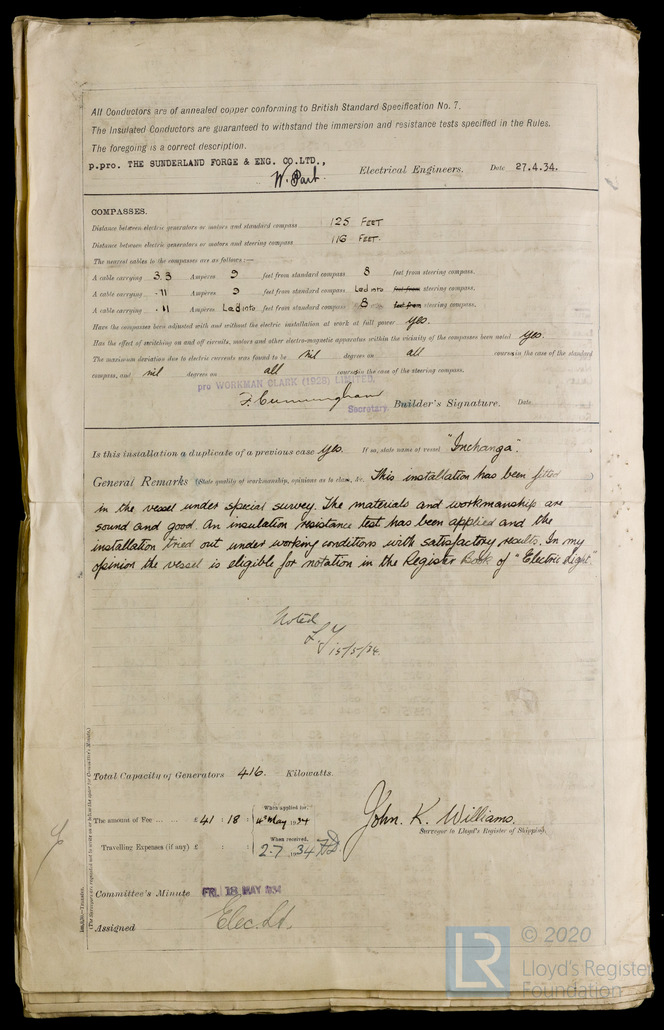 All Conductors are of annealed copper conforming to British Standard Specification No. 7.
The Insulated Conductors are guaranteed to withstand the immersion and resistance tests specified in the Rules.
The foregoing is a correct description.
p.pro. THE SUNDERLAND FORGE & ENG. CO.LTD.,
Electrical Engineers. Date 27.4.34.
COMPASSES.
Distance between electric generators or motors and standard compass 125 FEET
Distance between electric generators or motors and steering compass 116 FEET.
The nearest cables to the compasses are as follows:—
A cable carrying 3.3 Amperes 9 feet from standard compass 8 feet from steering compass.
A cable carrying .11 Amperes 9 feet from standard compass Led into feet from steering compass.
A cable carrying .11 Amperes Led into feet from standard compass 8 feet from steering compass.
Have the compasses been adjusted with and without the electric installation at work at full power yes.
Has the effect of switching on and off circuits, motors and other electro-magnetic apparatus within the vicinity of the compasses been noted yes.
The maximum deviation due to electric currents was found to be nil degrees on all courses in the case of the standard
compass, and nil degrees on all courses in the case of the steering compass.
pro WORKMAN CLARK (1928) LIMITED.
F. Cunningham
Secretary. Builder's Signature. Date
Is this installation a duplicate of a previous case yes. If so, state name of vessel "Inchanga".
General Remarks (State quality of workmanship, opinions as to class, &c. This installation has been fitted
in the vessel under special survey. The materials and workmanship are
sound and good. An insulation resistance test has been applied and the
installation tried out under working conditions with satisfactory results. In my
opinion the vessel is eligible for notation in the Register Book of "Electric Light".
Noted
15/5/34
Total Capacity of Generators 416 Kilowatts.
The amount of Fee ... ... £ 41 : 18 : When applied for, 4 May 1934
John. K. Williams.
Surveyor to Lloyd's Register of Shipping.
Travelling Expenses (if any) £ : : When received, 2.7.1934
Committee's Minute FRI. 18 MAY 1934
Assigned Elec. Lt.
(The Surveyors are requested not to write on or below the space for Committee's Minute.)
© 2020
LR
Lloyd's Register
Foundation